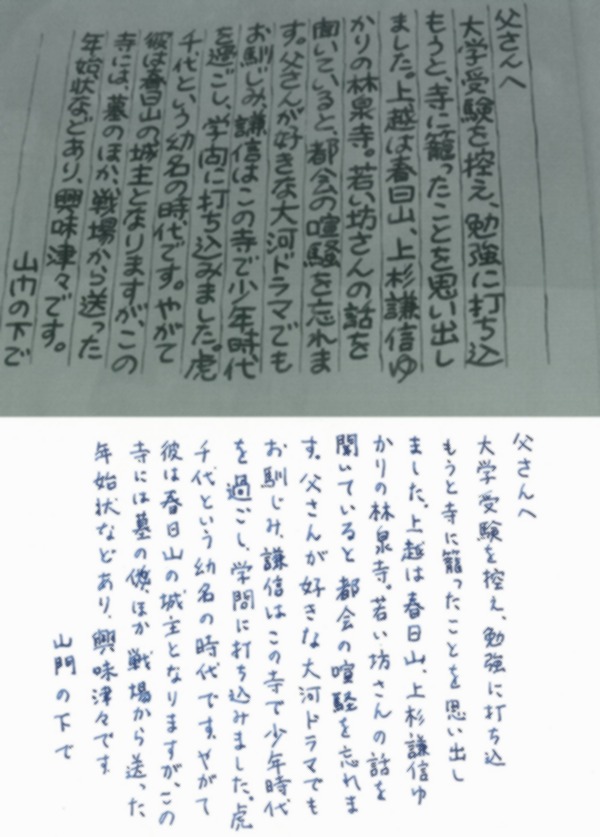 父さんへ
大学受験を控え、勉強に打ち込
もうと、寺に籠ったことを思い出し
ました。上越は春日山、上杉謙信ゆ
かりの林泉寺。若い坊さんの話を
聞いていると、都会の喧騒を忘れま
す。父さんが好きな大河ドラマでも
お馴じみ、謙信はこの寺で少年時代
を過ごし、学問に打ち込みました。虎
千代という幼名の時代です。やがて
彼は春日山の城主となりますが、この
寺には、墓のほか、戦場から送った
年始状などあり、興味津々です。
山門の下で
父さんへ
大学受験を控え、勉強に打ち込
もうと寺に籠ったことを思い出し
ました。上越は春日山、上杉謙信ゆ
かりの林泉寺。若い坊さんの話を
聞いていると都会の喧騒を忘れま
す。父さんが好きな大河ドラマでも
お馴じみ、謙信はこの寺で少年時代
を過ごし、学問に打ち込みました。虎
千代という幼名の時代です。やがて
彼は春日山の城主となりますが、この
寺には墓の、ほか戦場から送った、
年始状などあり、興味津々です。
山門の下で